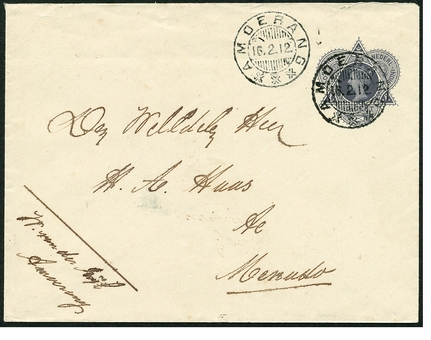 AMOERANG
16.2.12
AMOERANG
16.2.12
Den Weledelen Heer
H. A. Haas
Te
Menado
W. van der
Amoerang